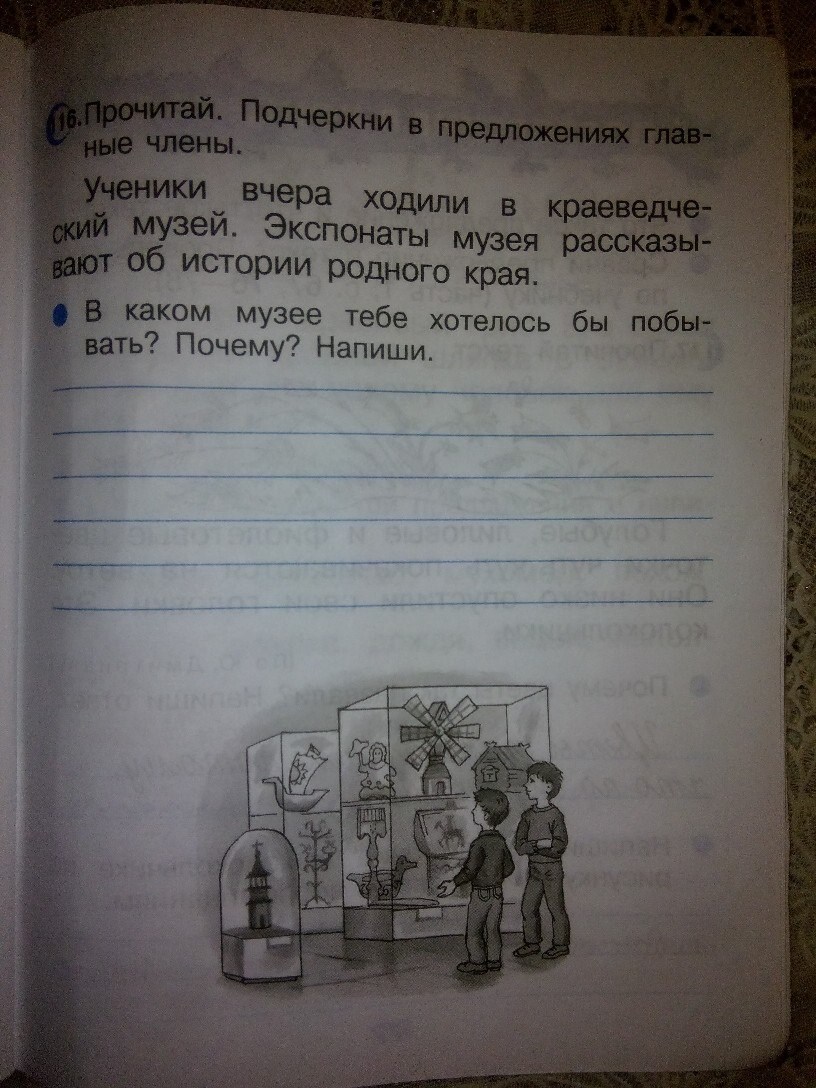 16. Прочитай. Подчеркни в предложениях глав-
ные члены.
Ученики вчера ходили в краеведче-
ский музей. Экспонаты музея рассказы-
вают об истории родного края.
В каком музее тебе хотелось бы побы-
вать? Почему? Напиши.